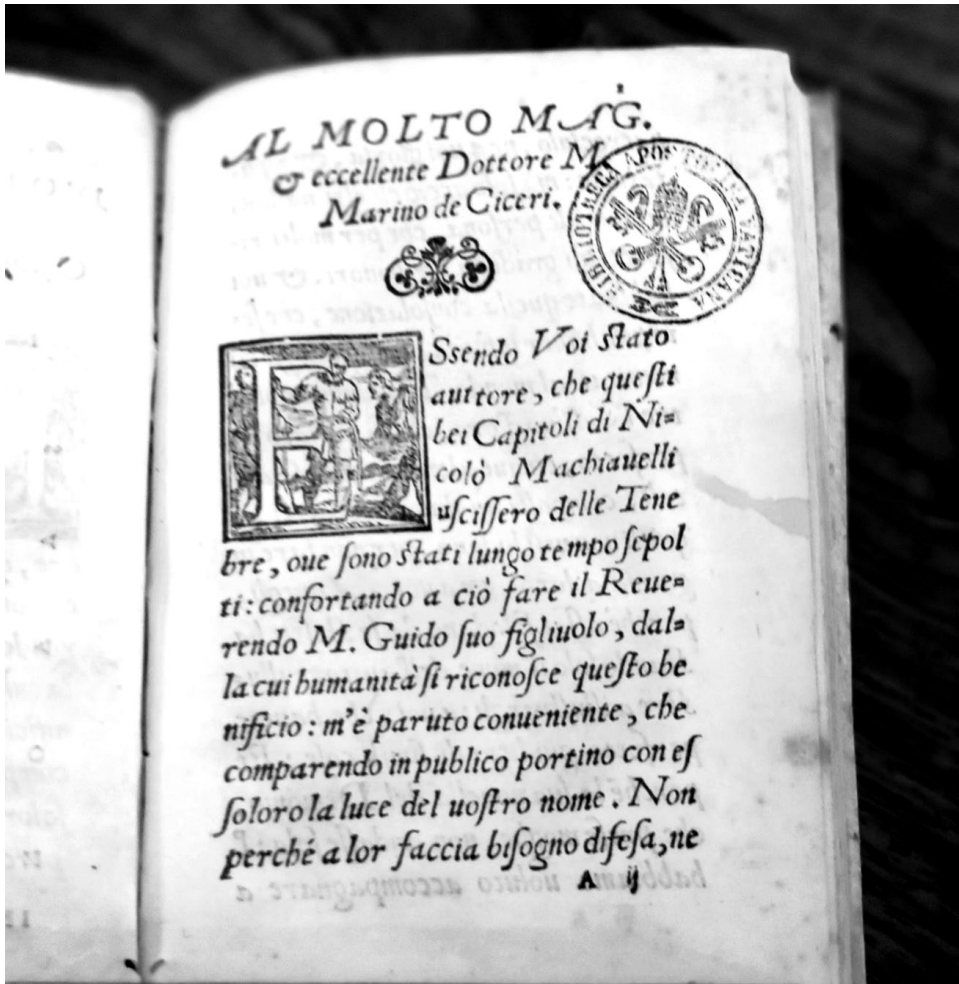 AL MOLTO MAG.
& eccellente Dottore M.
Marino de Ciceri.
BIBLIOTHECA APOSTOLICA VATICANA
ESsendo Voi ſtato
auttore, che queſti
bei Capitoli di Ni=
colò Machiauelli
uſciſſero delle Tene
bre, oue ſono ſtati lungo tempo ſepol
ti: confortando a ciò fare il Reue=
rendo M. Guido ſuo figliuolo, dal=
la cui humanità ſi riconoſce queſto be
nificio: m'è paruto conueniente, che
comparendo in publico portino con eſ
ſoloro la luce del uoſtro nome. Non
perché a lor faccia biſogno difeſa, ne
A ij